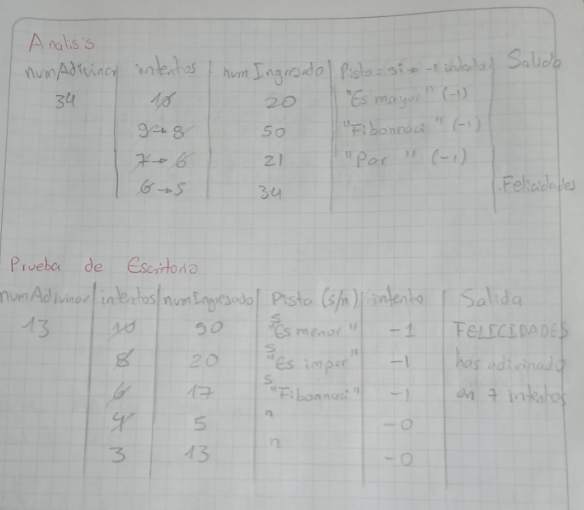 Analisis
numAdivinar intentos numIngresado Pista = si = -1 intento Salida
34 10 20 "Es mayor" (-1)
9→8 50 "Fibonnaci" (-1)
7→6 21 "Par" (-1)
6→5 34 Felicidades
Prueba de Escritorio
numAdivinar intentos numIngresado Pista (s/n) intento Salida
13 10 50 s "Es menor" -1 FELICIDADES
8 20 s "Es impar" -1 has adivinado
6 17 s "Fibonnaci" -1 en 7 intentos
4 5 n -0
3 13 n -0